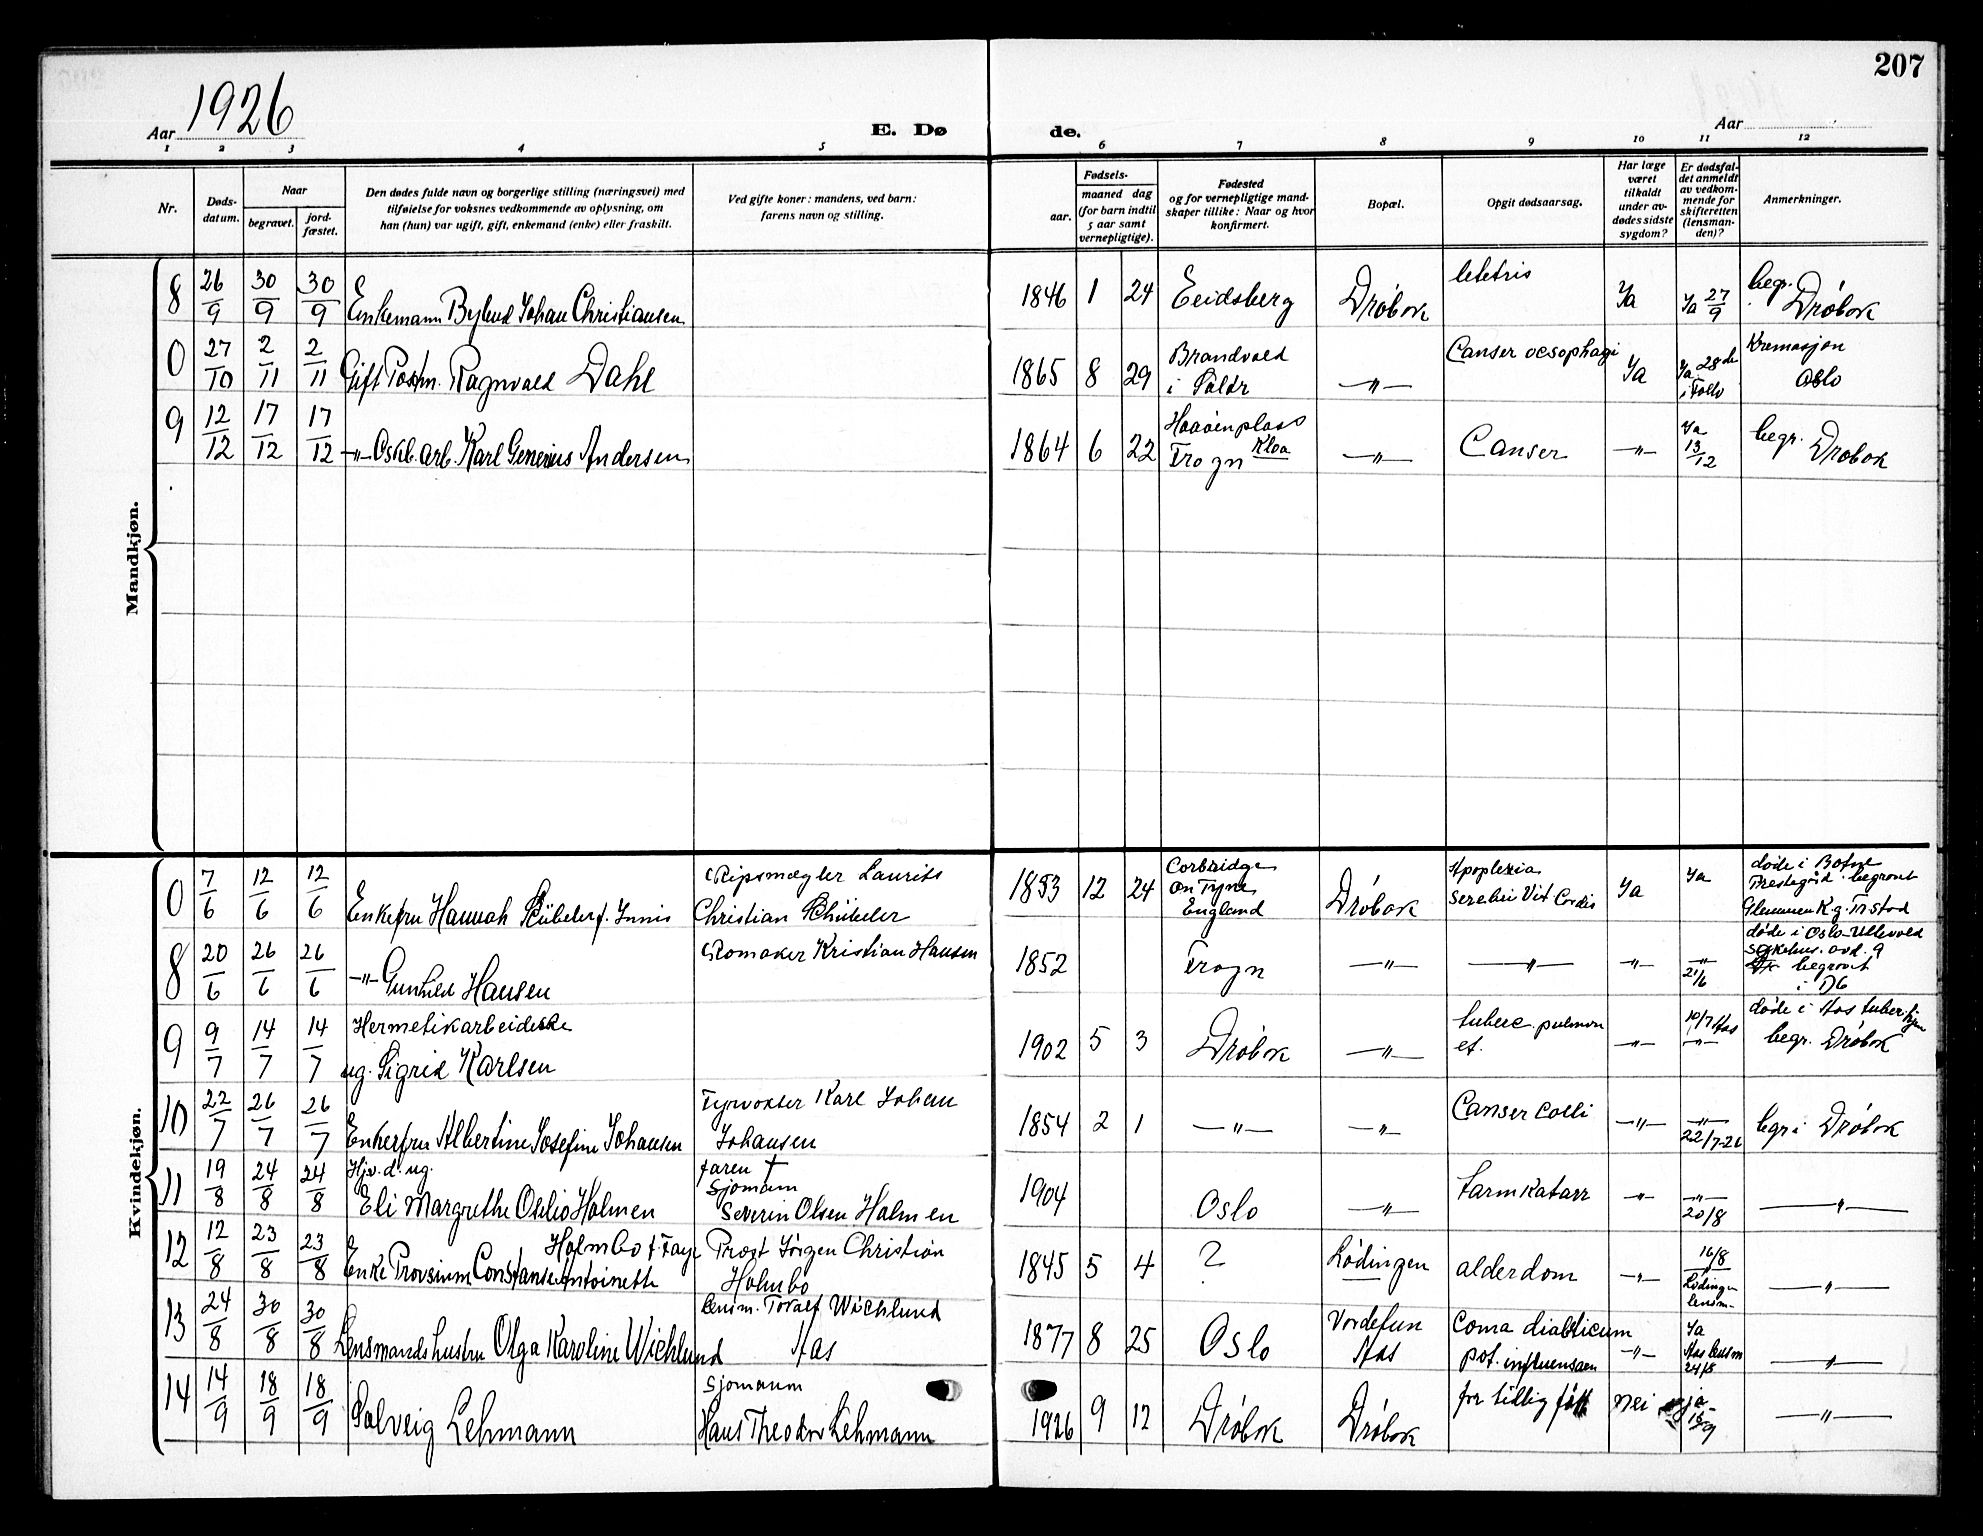 207
Aar 1926
E. Dø
de.
Aar
1 2 3 4 5 6 7 8 9 10 11 12
Nr.
Døds-
datum.
Naar
begravet.
jord-
fæstet.
Den dødes fulde navn og borgerlige stilling (næringsvei) med
tilføielse for voksnes vedkommende av oplysning, om
han (hun) var ugift, gift, enkemand (enke) eller fraskilt.
Ved gifte koner: mandens, ved barn:
farens navn og stilling.
Fødsels-
aar.
maaned dag
(for barn indtil
5 aar samt
vernepligtige).
Fødested
og for vernepligtige mand-
skaper tillike: Naar og hvor
konfirmert.
Bopæl.
Opgit dødsaarsag.
Har læge
været
tilkaldt
under av-
dødes sidste
sygdom?
Er dødsfal-
det anmeldt
av vedkom-
mende for
skifteretten
(lensman-
den)?
Anmerkninger.
Mandkjøn.
8 26/9 30/9 30/9 Enkemann Johan Christiansen 1846 1 24 Eidsberg Drøbak Ja Ja 27/9 begr. Drøbak
0 27/10 2/11 2/11 Gift Ragnvald Dahl 1865 8 29 Brandvold
i Solør -"- Canser oesophagi Ja Ja 28de
i Follo Kremasjon
Oslo
9 12/12 17/12 17/12 -"- arb. Karl Andersen 1864 6 22
Frogn Kloa -"- Canser -"- Ja
13/12 begr. Drøbak
Kvindekjøn.
0 7/6 12/6 12/6 Enkefru Hannah Schübeler f. Innis Skipsmægler Laurits
Christian Schübeler 1853 12 24 Corbridge
on Tyne
England Drøbak Apoplexia
Vit Cordis Ja Ja døde i
begravt
Glemmen K.g. Frstad
8 20/6 26/6 26/6 -"- Gunhild Hansen Romaker Kristian Hansen 1852 Frogn -"- -"- -"- -"-
21/6 døde i Oslo Ullevold
sykehus. avd. 9
begravet
i
9 9/7 14/7 14/7 Hermetikarbeiderske
ug. Sigrid Karlsen 1902 5 3 Drøbak -"- tuberc. pulmon
et. -"- 10/7 Aas
-"- døde i Aas tuber.hjem
begr. Drøbak
10 22/7 26/7 26/7 Enkefru Albertine Josefine Johansen Fyrvokter Karl Johan
Johansen 1854 2 1 -"- -"- Canser Colli -"- -"-
22/7-26 begr i Drøbak
11 19/8 24/8 24/8 Hjv. d. ug.
Eli Margrethe Holmen faren †
sjømann
Severin Olsen Holmen 1904 Oslo -"- tarmkatarr -"- -"-
20/8 -"-
12 12/8 23/8 23/8 Holmbo f. Faye
Enke Constanse Antoinette Prost Jørgen Christian
Holmbo 1845 5 4 ? Lødingen alderdom -"- 16/8
Lødingen
lensm. -"-
13 24/8 30/8 30/8 Lensmandshustru Olga Karoline Wichlund Lensm. Toralf Wichlund
Aas 1877 8 25 Oslo
Aas Coma diabeticum
pot. influensaen -"- Ja
Aas lensm
24/8 -"-
14 14/9 18/9 18/9 Solveig Lehmann Sjømann
Hans Theodor Lehmann 1926 9 12 Drøbak Drøbak for tidlig født nei ja
15/9 -"-